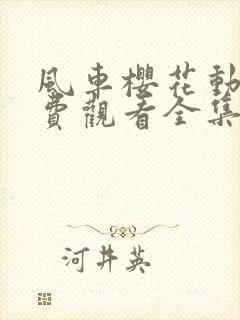 風車櫻花動
費觀看全集
河井英